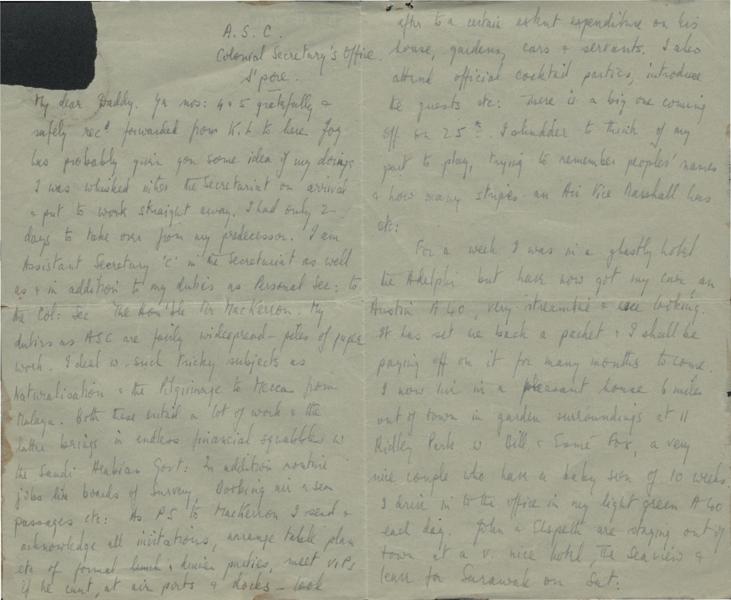 A.S.C.
Colonial Secretary's Office.
S'pore.
My dear Daddy. Yr nos: 4 & 5 gratefully &
safely recd forwarded from K.L to here. Joy
has probably given you some idea of my doings
I was whisked into the Secretariat on arrival
& put to work straight away. I had only 2
days to take over from my predecessor. I am
Assistant Secretary 'C' in the Secretariat as well
as & in addition to my duties as Personal Sec: to
the Col: Sec The Hon'ble Mr MacKerron. My
duties as ASC are fairly widespread - piles of paper
work. I deal w. such tricky subjects as
Naturalisation & the Pilgrimage to Mecca from
Malaya. Both these entail a lot of work & the
latter brings in endless financial squabbles w
the Saudi Arabian Govt: In addition routine
jobs like boards of Survey, Booking air & sea
passages etc: As P.S to MacKerron I send &
acknowledge all invitations, arrange table plan
etc of formal lunch & dinner parties, meet V.I.Ps
if he can't, at air ports & docks - look
after to a certain extent expenditure on his
house, gardens, cars & servants. I also
attend official cocktail parties, introduce
the guests etc: There is a big one coming
off on 25th. I shudder to think of my
part to play, trying to remember peoples' names
& how many stripes an Air Vice Marshall has
etc:
For a week I was in a ghastly hotel
the Adelphi but have now got my car, an
Austin A40, very streamlined & nice looking.
It has set me back a packet & I shall be
paying off on it for many months to come.
I now live in a pleasant house 6 miles
out of town in garden surroundings at 11
Ridley Park w Bill & Fox, a very
nice couple who have a baby son of 10 weeks
I drive in to the office in my light green A40
each day. John & Elspeth are staying out of
town at a v. nice hotel, the Seaview &
leave for Sarawak on Sat: